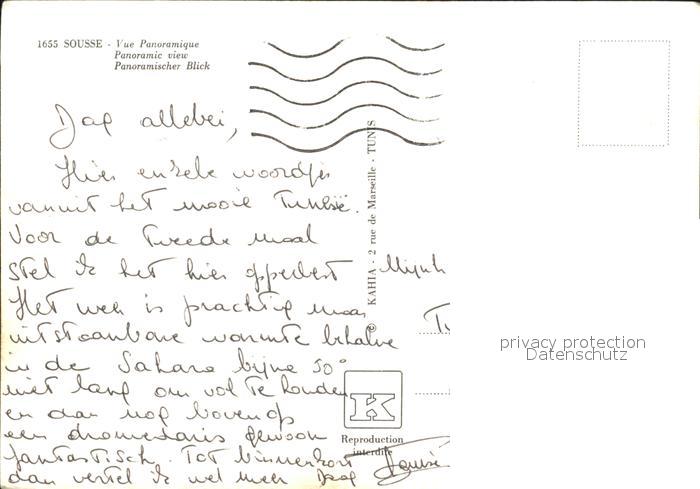 1655 SOUSSE - Vue Panoramique
Panoramic view
Panoramischer Blick
Dag allebei,
Hier enkele woordjes
vanuit het mooie Tunesië.
Voor de tweede maal
stel ik het hier opperbest
Het weer is prachtig maar
uitstaanbare warmte behalve
in de Sahara bijna 50°
niet lang om vol te houden
en dan nog bovenop
een dromedaris gewoon
fantastisch. Tot binnenkort
dan vertel ik wel meer Dag
Louise
© KAHIA - 2 rue de Marseille - TUNIS
K
Reproduction
interdite
privacy protection
Datenschutz